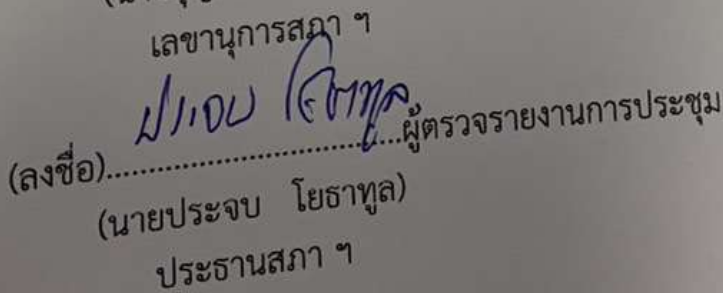 เลขานุการสภา ฯ
ประจบ โยธาทูล
(ลงชื่อ)....................................ผู้ตรวจรายงานการประชุม
(นายประจบ โยธาทูล)
ประธานสภา ฯ